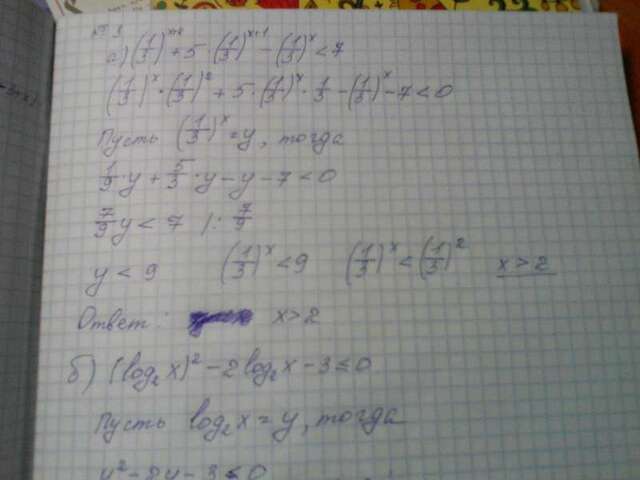 а) (1/3)^(x+2) + 5 · (1/3)^(x+1) − (1/3)^x < 7
(1/3)^x · (1/3)^2 + 5 · (1/3)^x · 1/3 − (1/3)^x − 7 < 0
Пусть (1/3)^x = y, тогда
1/9 · y + 5/3 · y − y − 7 < 0
7/9 y < 7 | : 7/9
y < 9 (1/3)^x < 9 (1/3)^x < (1/3)^2 x > 2
Ответ: x > 2
б) (log₂ x)² − 2 log₂ x − 3 ≤ 0
Пусть log₂ x = y, тогда
y² − 2y − 3 ≤ 0